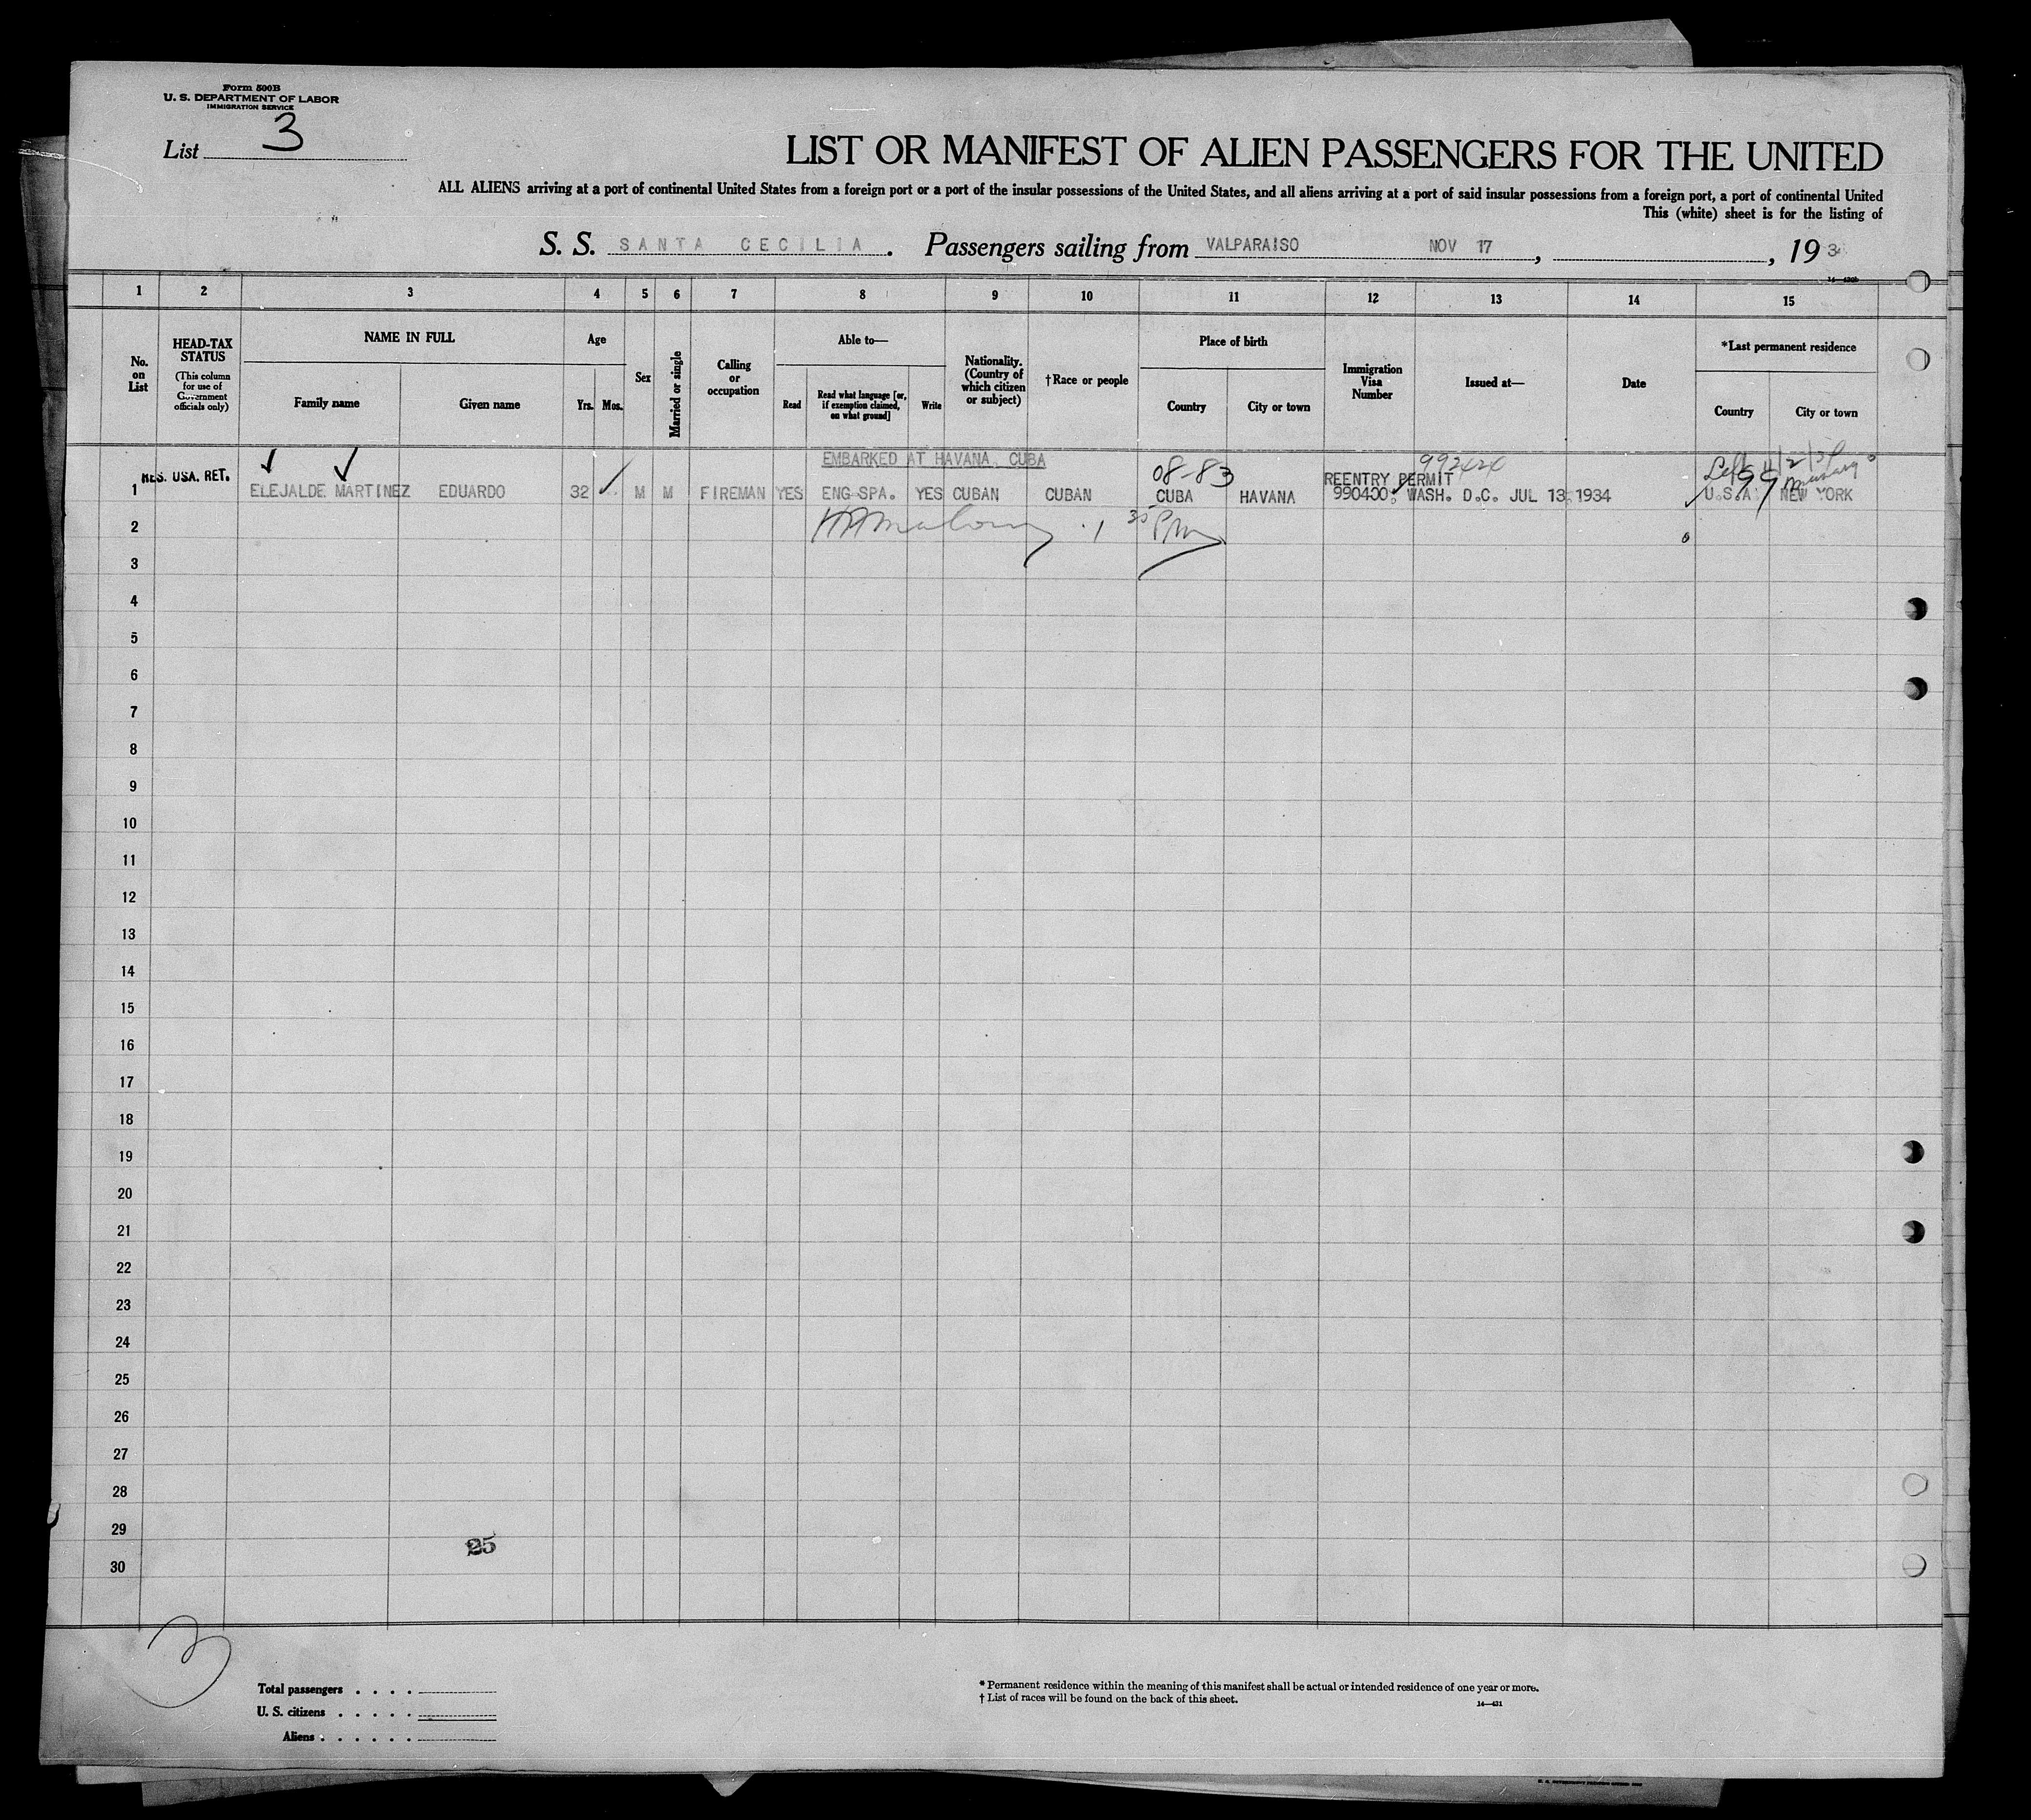 Form 500B
U. S. DEPARTMENT OF LABOR
IMMIGRATION SERVICE
List 3
LIST OR MANIFEST OF ALIEN PASSENGERS FOR THE UNITED
ALL ALIENS arriving at a port of continental United States from a foreign port or a port of the insular possessions of the United States, and all aliens arriving at a port of said insular possessions from a foreign port, a port of continental United
This (white) sheet is for the listing of
S. S. SANTA CECILIA. Passengers sailing from VALPARAISO NOV 17, , 193
1 2 3 4 5 6 7 8 9 10 11 12 13 14 15
No. on List
HEAD-TAX STATUS
(This column for use of Government officials only)
NAME IN FULL
Family name
Given name
Age
Yrs. Mos.
Sex
Married or single
Calling or occupation
Able to—
Read
Read what language [or, if exemption claimed, on what ground]
Write
Nationality. (Country of which citizen or subject)
†Race or people
Place of birth
Country
City or town
Immigration Visa Number
Issued at—
Date
*Last permanent residence
Country
City or town
EMBARKED AT HAVANA CUBA
08-83
992424
RES. USA. RET.
REENTRY PERMIT
1 ELEJALDE MARTINEZ EDUARDO 32 M M FIREMAN YES ENG-SPA. YES CUBAN CUBAN CUBA HAVANA 990400. WASH. D.C. JUL 13, 1934 U.S.A. NEW YORK
2
3
4
5
6
7
8
9
10
11
12
13
14
15
16
17
18
19
20
21
22
23
24
25
26
27
28
29
25
30
3
Total passengers . . . .
U. S. citizens . . . . .
Aliens . . . . . .
* Permanent residence within the meaning of this manifest shall be actual or intended residence of one year or more.
† List of races will be found on the back of this sheet.
14—431